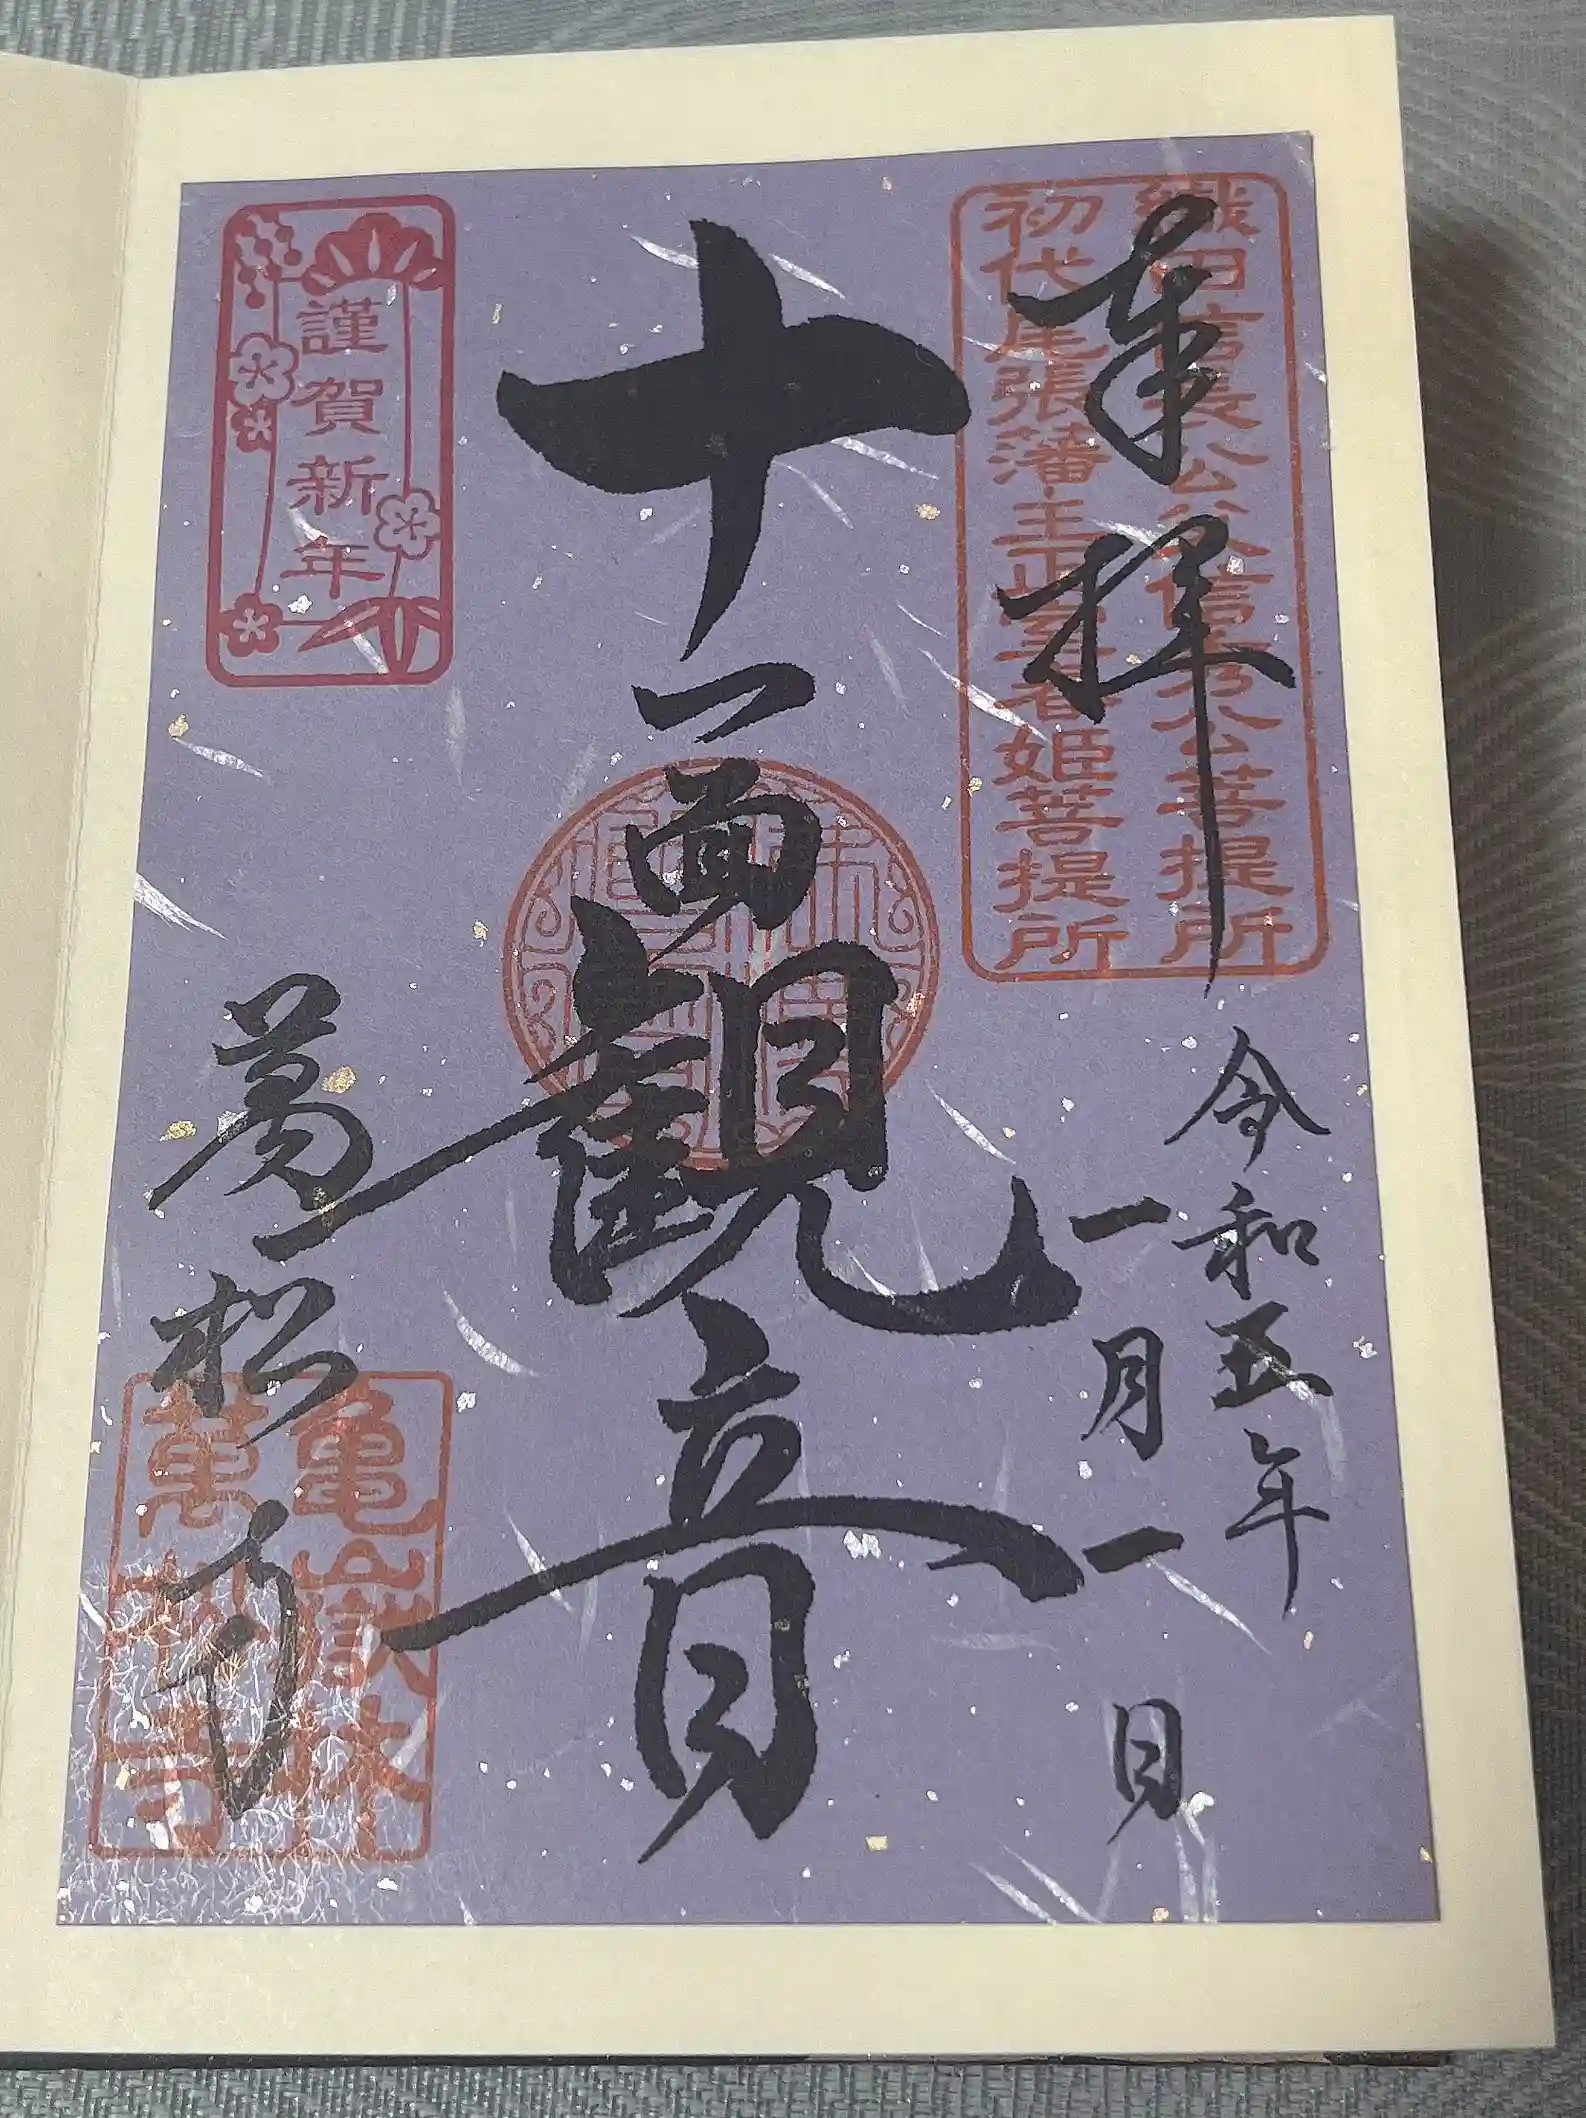 奉拝
織田信長公父信秀公菩提所
初代尾張藩主正室春姫菩提所
令和五年
一月一日
十一面観音
謹賀新年
萬松寺
亀岳林
萬松寺